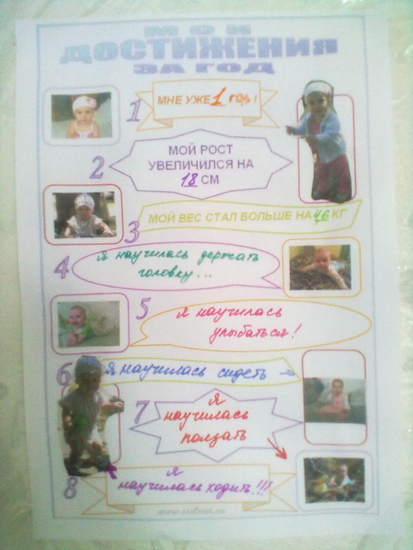 МОИ
ДОСТИЖЕНИЯ
ЗА ГОД
1
МНЕ УЖЕ 1 год!
2
МОЙ РОСТ
УВЕЛИЧИЛСЯ НА
18 СМ
3
МОЙ ВЕС СТАЛ БОЛЬШЕ НА 4,6 КГ
4
Я научилась держать
головку...
5
Я научилась
улыбаться!
6
Я научилась сидеть
7
Я
научилась
ползать
8
Я
научилась ходить!!!